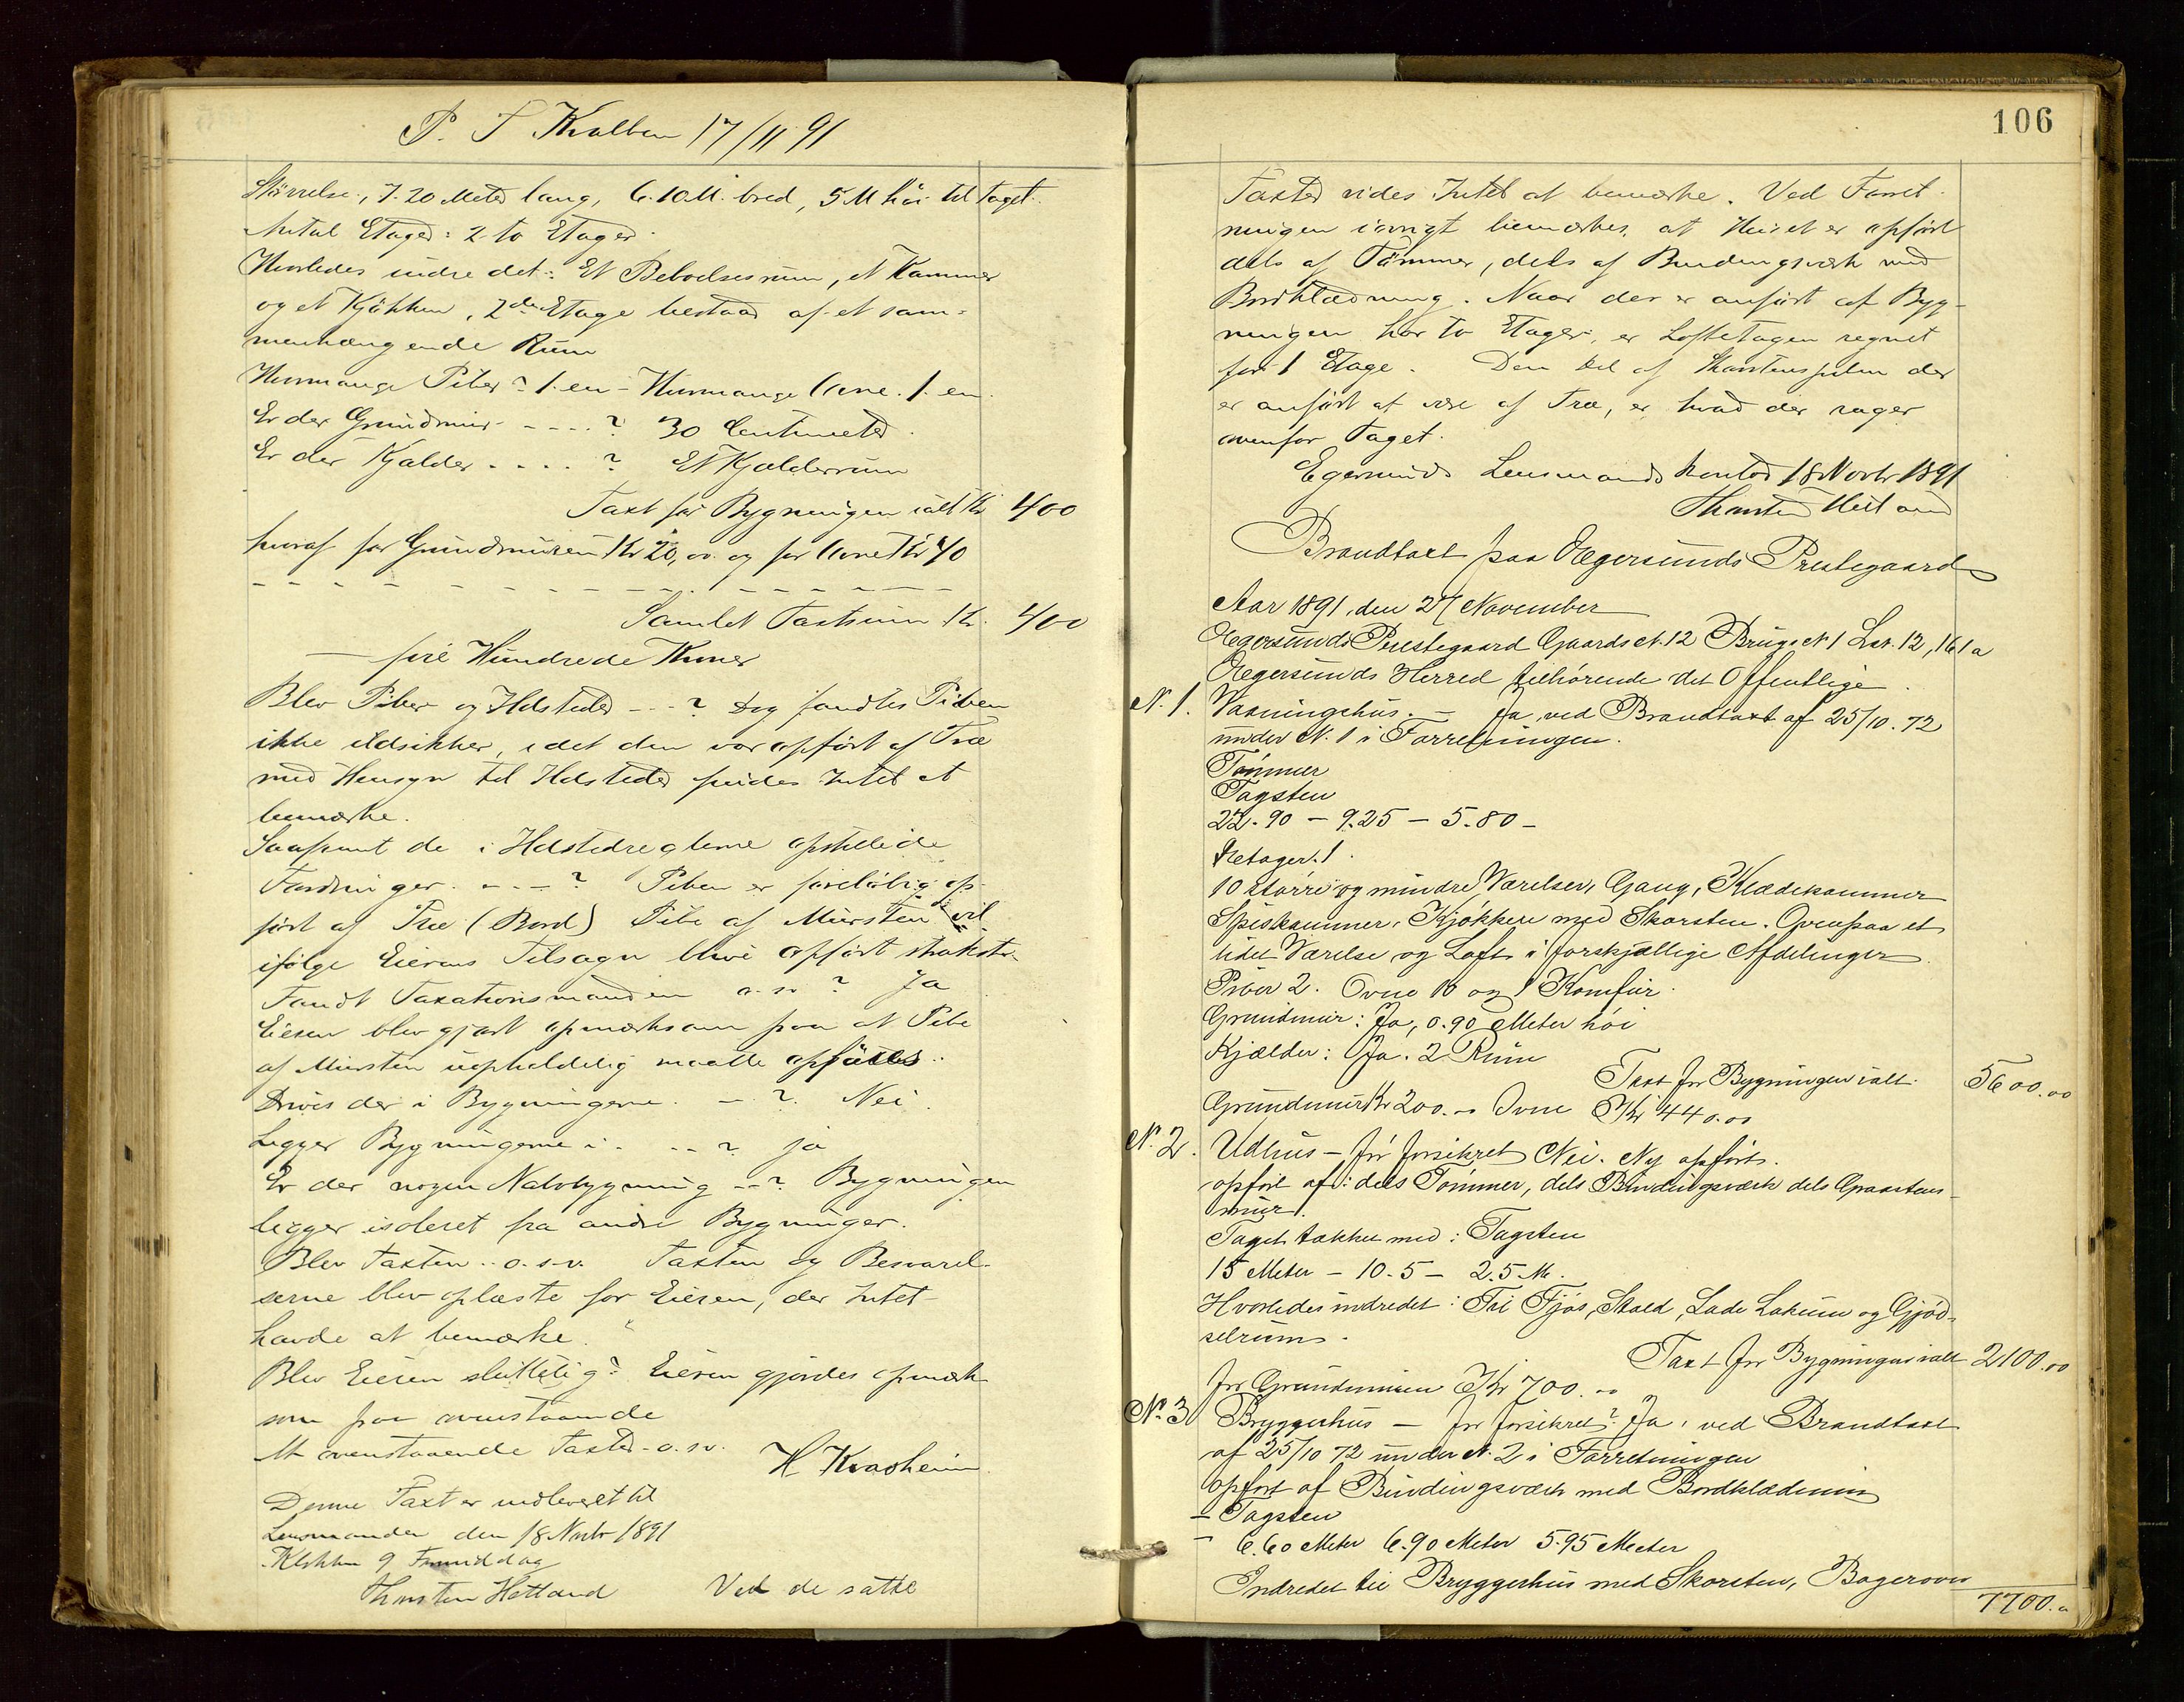 P. S Kvalben 17/11 91
Störrelse, 7.20 Meter lang, 6.10 M. bred, 5 M høi til taget.
Antal Etager: 2 to Etager.
Hvorledes indredet: Et Beboelsesrum, et Kammer
og et Kjøkken, 2den Etage bestaar af et sam-
menhængende Rum
Hvormange Piber? 1. en - Hvormange Ovne. 1. en.
Er der Grundmur - - - - ? 30 Centimeter.
Er der Kjælder . . . . ? Et Kjælderrum
Taxt for Bygningen ialt Kr 400
hvoraf for Grundmuren Kr 20,00 og for Ovne Kr 40
Samlet Taxtsum Kr. 400
— fire Hundrede Kroner
Blev Piber og Ildsteder - - - ? dog fandtes Piben
ikke ildsikker, idet den var opført af Træ
med Hensyn til Ildsteder fandtes Intet at
bemærke.
Saafremt de i Ildstedreglerne opstillede
Fordringer. - - - ? Piben er foreløbig op-
ført af Træ (Bord) Pibe af Mursten vil
ifølge Eierens Tilsagn blive opført straks
Fandt Taxationsmanden o. s. v ? Ja
Eieren blev gjort opmærksom paa at Pibe
af Mursten uopholdelig maatte opføres.
Drives der i Bygningerne. - ? Nei.
Ligger Bygningerne i . . - - ? ja
Er der nogen Nabobygning - - ? Bygningen
ligger isoleret fra andre Bygninger.
Blev Taxten .. o. s. v. Taxten og Besvarel-
serne blev oplæste for Eieren, der Intet
havde at bemærke.
Blev Eieren sluttelig? Eieren gjordes opmærk-
som paa ovenstaaende
At ovenstaaende Taxter o. s. v.
H Kvasheim
Denne Taxt er indleveret til
Lensmanden den 18 Novbr 1891
Klokken 9 Formiddag
Thorsten Hetland
Ved de satte
106
Taxter vides Intet at bemærke. Ved Forret-
ningen iøvrigt bemærkes, at Huset er opført
dels af Tømmer, dels af Bindingsværk med
Bordklædning. Naar der er anført at Byg-
ningen har to Etager, er Loftetagen regnet
for 1 Etage. Den Del af Skorstenspiben der
er anført at være af Træ, er hvad der rager
ovenfor Taget.
Egersunds Lensmandskontor 18 Novbr 1891
Thorsten Hetland
Brandtaxt paa Egersunds Prestegaard
Aar 1891, den 27 November
Egersunds Prestegaard Gaards N. 12 Brugs N 1 Lnr. 12, 161a
Egersunds Herred tilhørende det Offentlige.
N. 1. Vaaningshus. — Ja, ved Brandtaxt af 25/10. 72
under N. 1 i Forretningen.
Tømmer
Tagsten
22.90 - 9.25 - 5.80 -
Etager. 1.
10 større og mindre Værelser, Gang, Klædekammer
Spiskammer, Kjøkken med Skorsten. Ovenpaa et
lidet Værelse og Loft i forskjellige Afdelinger.
Piber 2. Ovne 10 og 1 Komfur.
Grundmur: Ja, 0.90 Meter høi
Kjælder: Ja. 2 Rum
Taxt for Bygningen ialt. 5600.00
Grundmur Kr 200.00 Ovne Kr 440.00
N. 2. Udhus — før forsikret Nei. Ny opført.
opført af: dels Tømmer, dels Bindingsværk dels Graastens-
mur.
Taget tækket med: Tagsten
15 Meter - 10.5 - 2.5 M.
Hvorledes indredet: Til Fjøs, Stald, Lade Lorum og Gjød-
selrum.
Taxt for Bygningen ialt 2100.00
for Grundmuren Kr 700.00
N. 3 Bryggerhus — før forsikret? Ja, ved Brandtaxt
af 25/10 72 under N. 2 i Forretningen
opført af Bindingsværk med Bordklædning
- Tagsten
- 6.60 Meter 6.90 Meter 5.95 Meter
Indredet til Bryggerhus med Skorsten, Bagerovn
7700.00